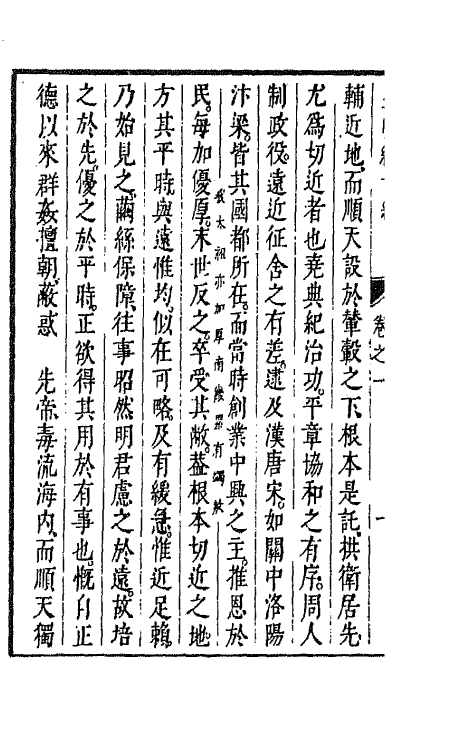 卷之一
一
輔近地而順天設於輦轂之下根本是託拱衛居先
尤爲切近者也堯典紀治功平章協和之有序周人
制政役遠近征舍之有差逮及漢唐宋如關中洛陽
汴梁皆其國都所在而當時創業中興之主推恩於
民每加優厚末世反之卒受其敝蓋根本切近之地
我太祖亦加厚南畿累有蠲赦
方其平時與遠惟均似在可略及有緩急惟近足賴
乃始見之繭絲保障往事昭然明君慮之於遠故培
之於先優之於平時正欲得其用於有事也慨自正
德以來群姦擅朝蔽惑 先帝毒流海内而順天獨